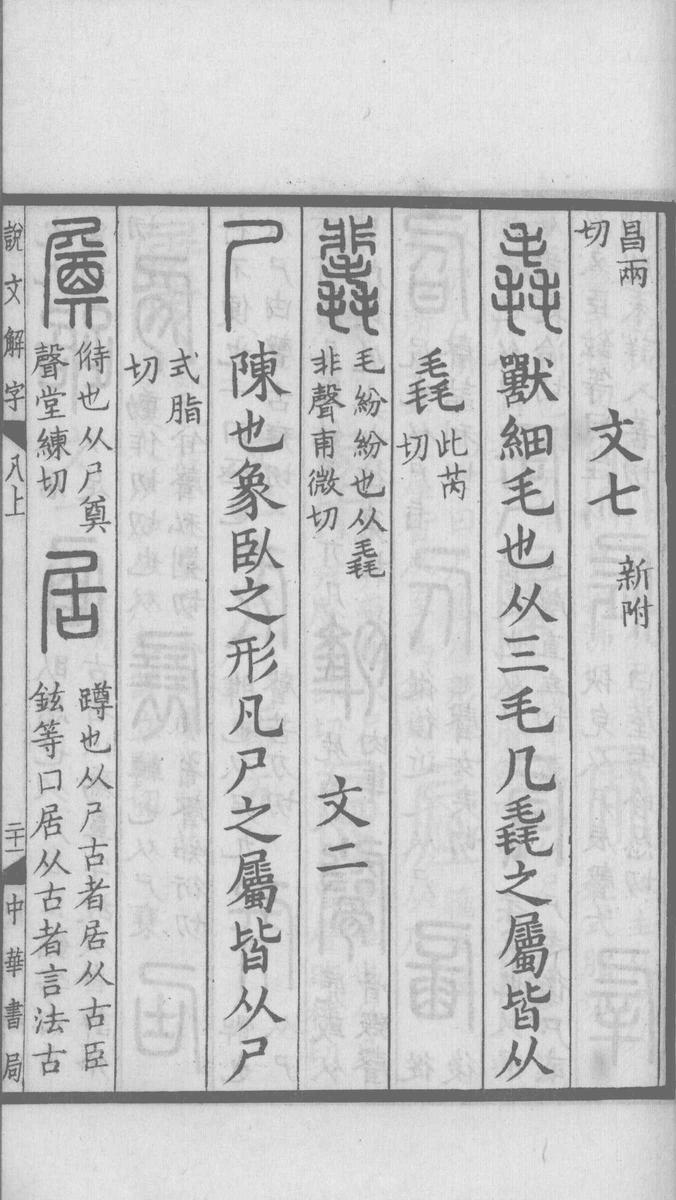 昌兩
切
文七
新附
毳 獸細毛也从三毛凡毳之屬皆从
毳此芮
切
𣯍 毛紛紛也从毳
非聲甫微切
文二
尸 陳也象臥之形凡尸之屬皆从尸
式脂
切
㞟 偫也从尸奠
聲堂練切
居 蹲也从尸古者居从古臣
鉉等曰居从古者言法古
說文解字 八上 二十一 中華書局